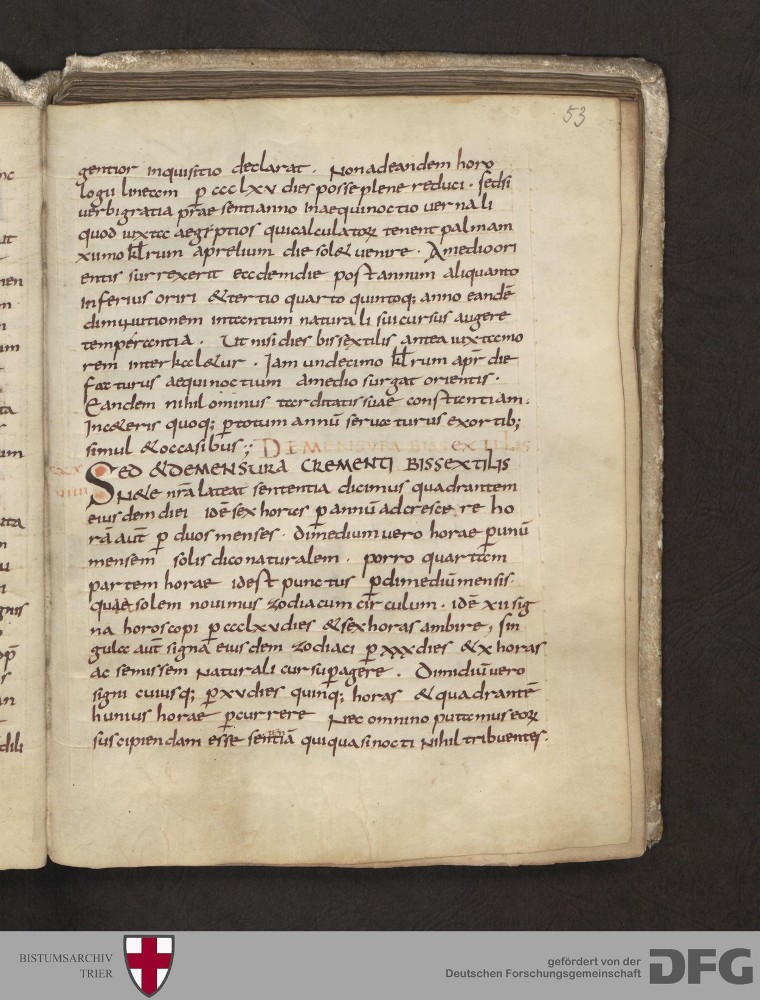 53
gentior inquisitio declarat. Non ad eandem horo
logii lineam p ccclxv dies posse plene reduci. sed si
verbi gratia prae senti anno in aequinoctio vernali
quod iuxta aegyptios qui calculatorꝝ tenent palmam
xii mo kl̅rum aprelium die sol& venire. A medio ori
entis surrexerit eadem die post annum aliquanto
inferius oriri & tertio quarto quintoq; anno eandē
diminutionem in tantum naturali sui cursus augere
temperantia. Ut nisi dies bissextilis antea iuxta mo
rem interkal&ur. Iam undecimo kl̅rum apr̅ die
facturus aequinoctium a medio surgat orientis.
Eandem nihil ominus tarditatis suae constantiam.
In c&eris quoq; p totum annū servaturus exortib;
simul & occasibus;; DE MENSURA BISSEXTILIS
SED & DE MENSURA CREMENTI BISSEXTILIS
N& e nr̅a lateat sententia dicimus quadrantem
eiusdem diei idē sex horas p annū adcrescere ho
rā aut̅ p duos menses. dimedium vero horae p unū
mensem solis dico naturalem. porro quartam
partem horae id est punctus p dimediū mensis.
quae solem novimus zodiacum circulum. idē xii sig
na horoscopi p ccclxv dies & sex horas ambire, sin
gula aut̅ signa eiusdem zodiaci p xxx dies & x horas
ac semissem naturali cursu pagere. Dimidiū vero
signi cuiusq; p xv dies quinq; horas & quadrantē
hunius horae pcurrere Nec omnino putamus eorꝝ
suscipiendam esse sentiā qui quasi nocti nihil tribuentes.
BISTUMSARCHIV
TRIER
gefördert von der
Deutschen Forschungsgemeinschaft
DFG